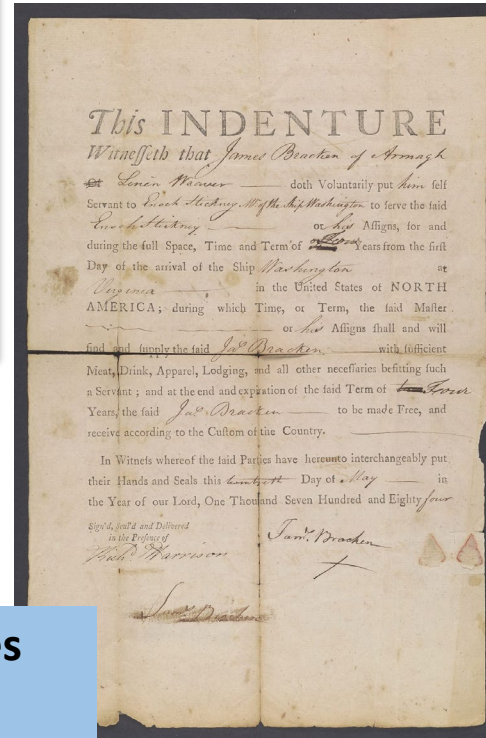 This INDENTURE
Witneſſeth that James Bracken of Armagh
Linen Weaver doth Voluntarily put him ſelf
Servant to Enoch Stickney Mr of the Ship Washington to ſerve the ſaid
Enoch Stickney or his Aſſigns, for and
during the full Space, Time and Term of Four Years from the firſt
Day of the arrival of the Ship Washington at
Virginia in the United States of NORTH
AMERICA; during which Time, or Term, the ſaid Maſter
or his Aſſigns ſhall and will
find and ſupply the ſaid Jas Bracken with ſufficient
Meat, Drink, Apparel, Lodging, and all other neceſſaries befitting ſuch
a Servant; and at the end and expiration of the ſaid Term of Four
Years, the ſaid Jas Bracken to be made Free, and
receive according to the Cuſtom of the Country.
In Witneſs whereof the ſaid Parties have hereunto interchangeably put
their Hands and Seals this Day of May in
the Year of our Lord, One Thouſand Seven Hundred and Eighty four
Sign'd, Seal'd and Delivered
in the Preſence of
Richd Harrison
Jams. Bracken
Bracken
s